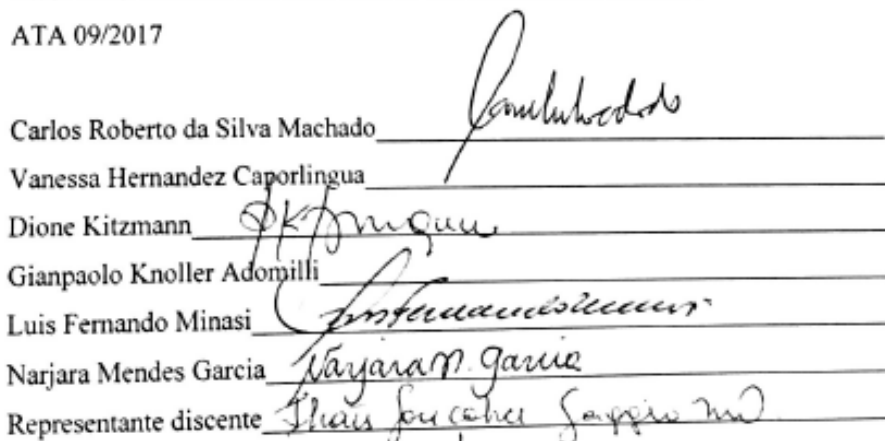 ATA 09/2017
Carlos Roberto da Silva Machado
Vanessa Hernandez Caporlingua
Dione Kitzmann
Gianpaolo Knoller Adomilli
Luis Fernando Minasi
Narjara Mendes Garcia Narjara M. Garcia
Representante discente Thais